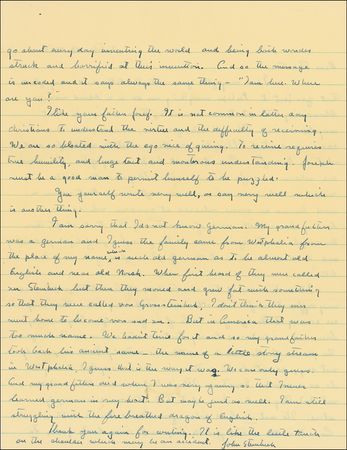 go about every day inventing the world and being both wonder
struck and horrified at this invention. And so the message
is encoded and it says always the same thing – "I am here. Where
are you?"
I like your father Josef. It is not common in latter day
christians to understand the virtue and the difficulty of receiving.
We are so bloated with the ego vice of giving. To receive requires
true humility, and huge tact and monstrous understanding. Joseph
must be a good man to permit himself to be puzzled.
You yourself write very well, or say very well which
is another thing.
I am sorry that I do not know German. My grandfather
was a german and I guess the family came from Westphalia from
the place of my name, which is such old german as to be almost old
English and near old Norse. When first heard of they were called
von Steinbeck but then they moved and grew fat with something
so that they were called von Grossteinbeck. I don't think they ever
went home to become von and zu. But in America that was
too much name. We hadn't time for it and so my grandfather
took back his ancient name – the name of a little stony stream
in Westphalia. I guess that is the way it was. We can only guess.
And my grandfather died when I was very young so that I never
learned german in my heart. But maybe just as well. I am still
struggling with the fire breathed dragon of English.
Thank you again for writing. It is like the little touch
on the shoulder which may be an accident. John Steinbeck